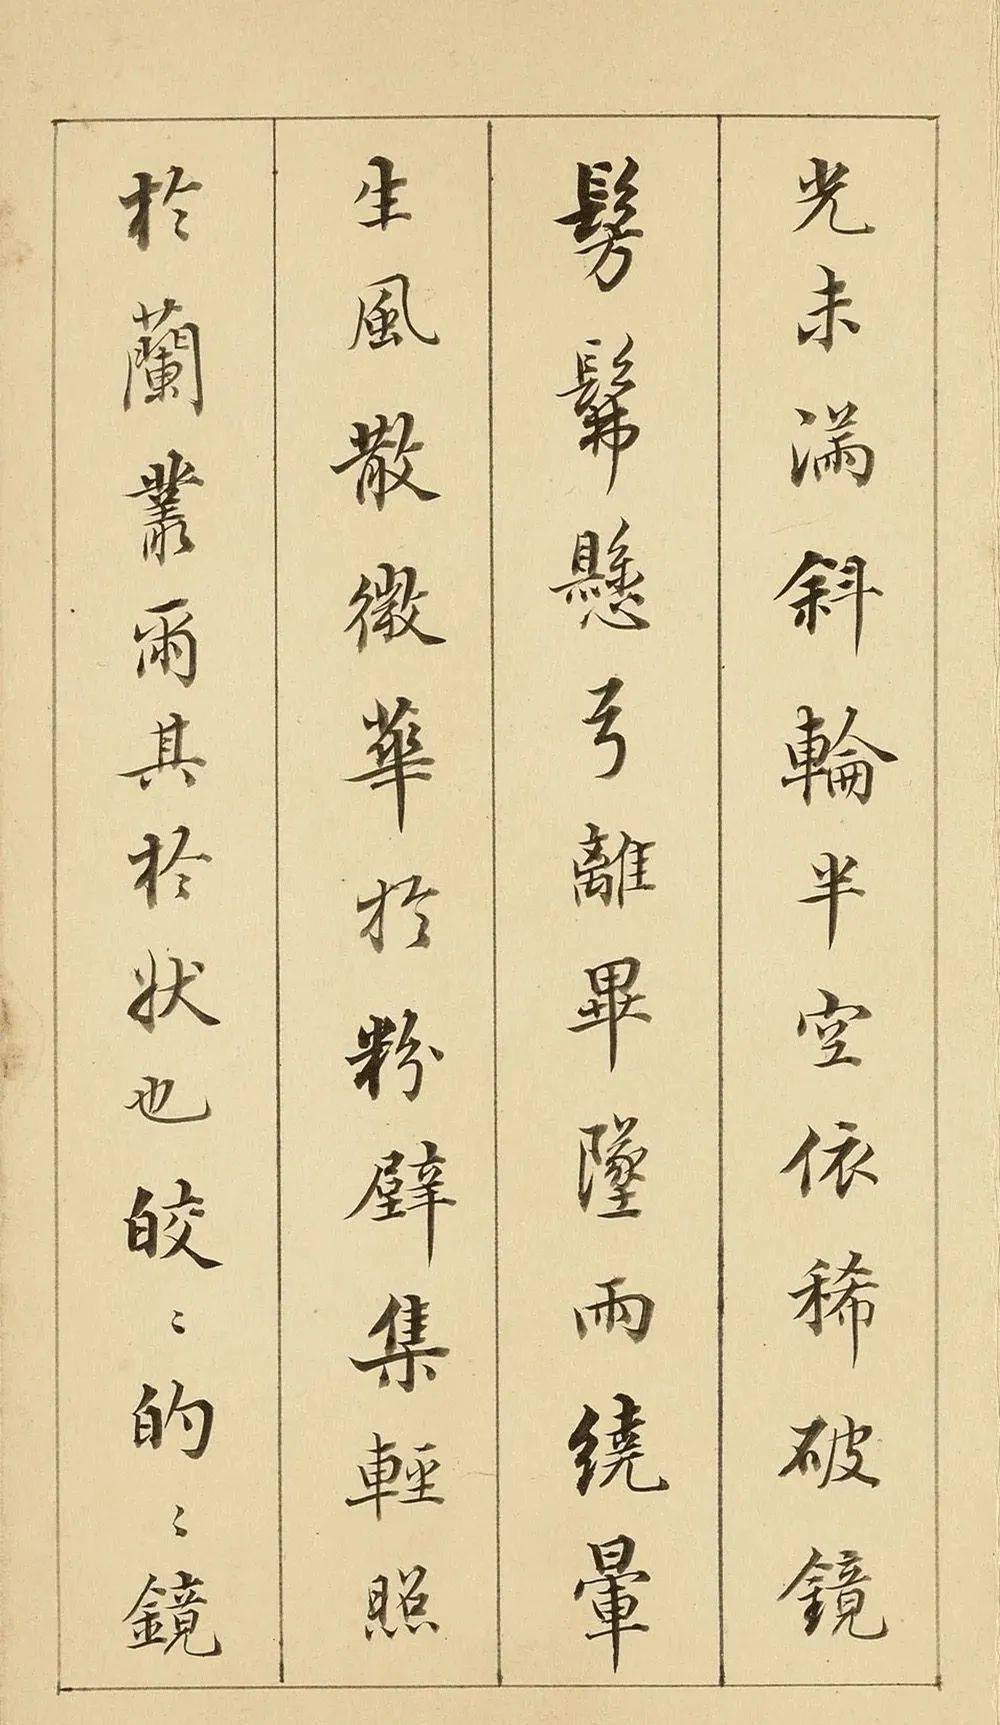 光未滿斜輪半空依稀破鏡
髣髴懸弓離畢墜雨繞暈
生風散微華於粉壁集輕照
於蘭叢爾其於狀也皎〻的〻鏡